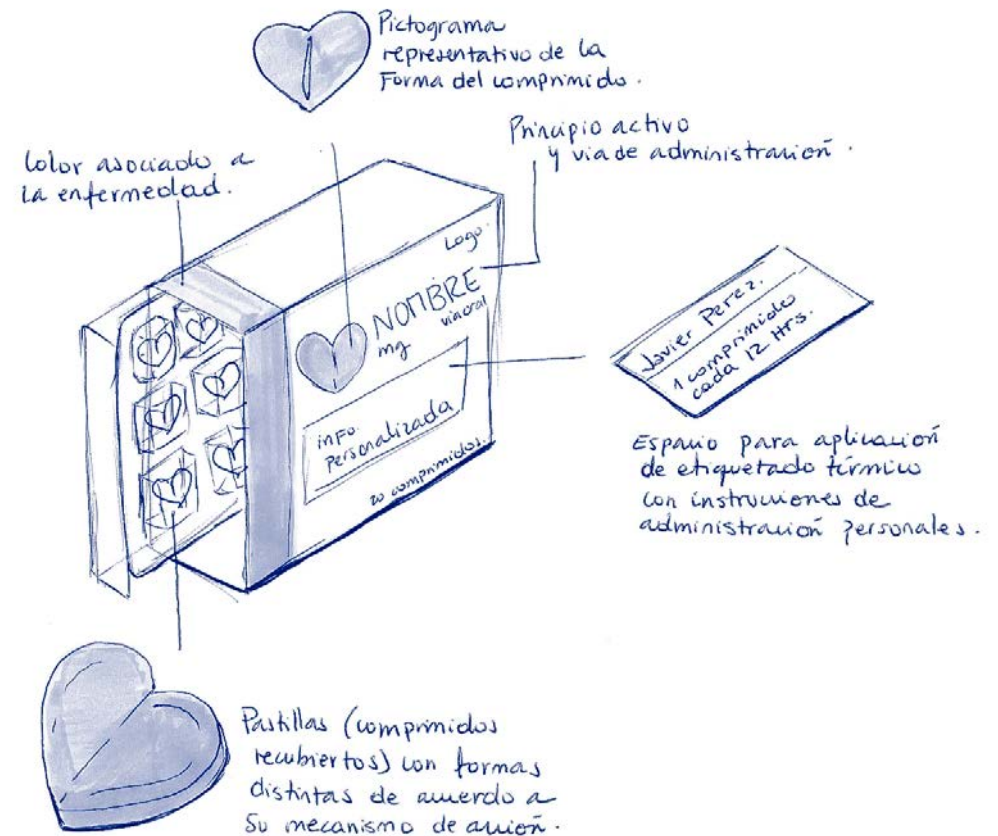 Pictograma
representativo de la
Forma del comprimido.
Principio activo
y via de administración.
Color asociado a
la enfermedad.
Logo
NOMBRE
via oral
mg
info.
Personalizada
20 comprimidos.
Javier Perez.
1 comprimido
cada 12 Hrs.
Espacio para aplicación
de etiquetado térmico
con instrucciones de
administración personales.
Pastillas (comprimidos
recubiertos) con formas
distintas de acuerdo a
su mecanismo de acción.